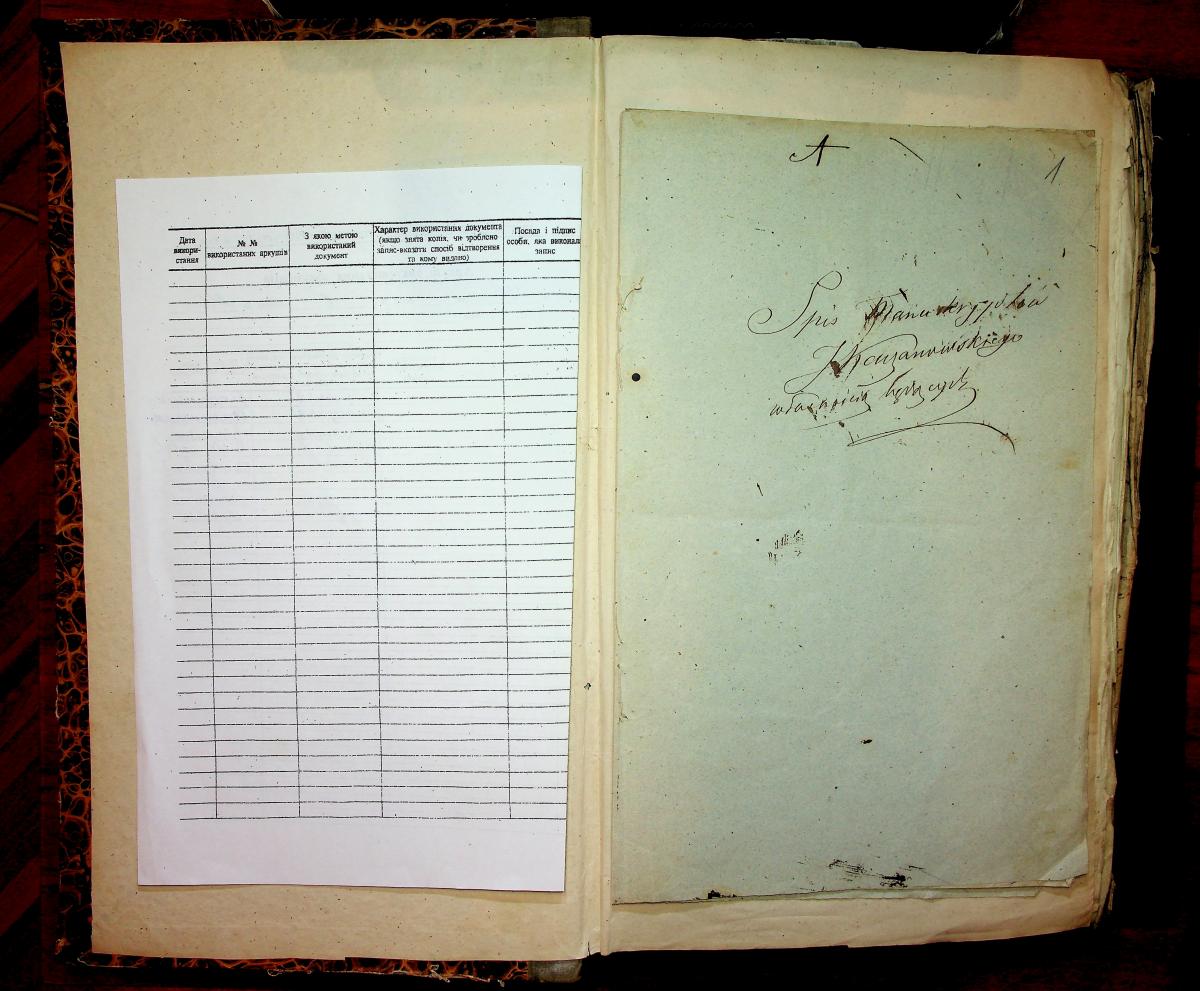 Дата
викори-
стання
№ №
використаних аркушів
З якою метою
використаний
документ
Характер використання документа
(якщо знята копія, чи зроблено
запис-вказати спосіб відтворення
та кому видано)
Посада і підпис
особи, яка виконал
запис
A
1
Spis Manuskryptów
własnością będących